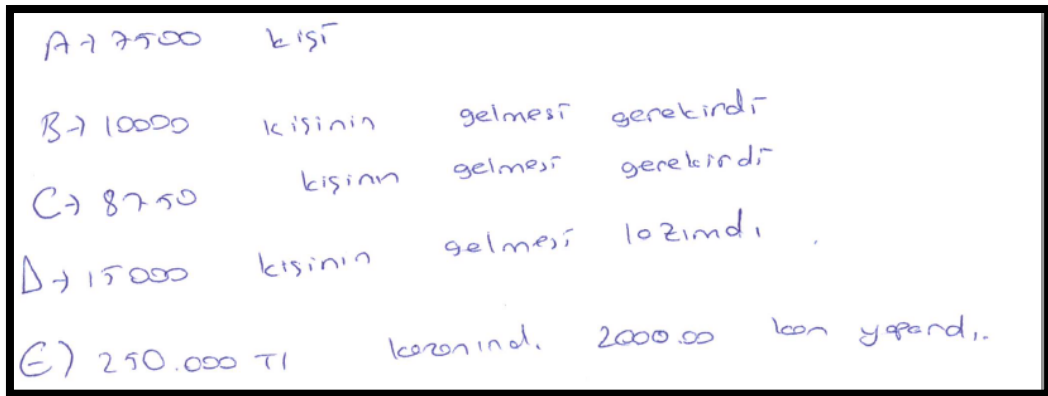 A→ 7500 kişi
B→ 10000 kişinin gelmesi gerekirdi
C→ 8750 kişinn gelmesi gerekirdi
D→ 15000 kişinin gelmesi lazımdı
E) 250.000 Tl kazanınd. 2000.00 kar yapard..